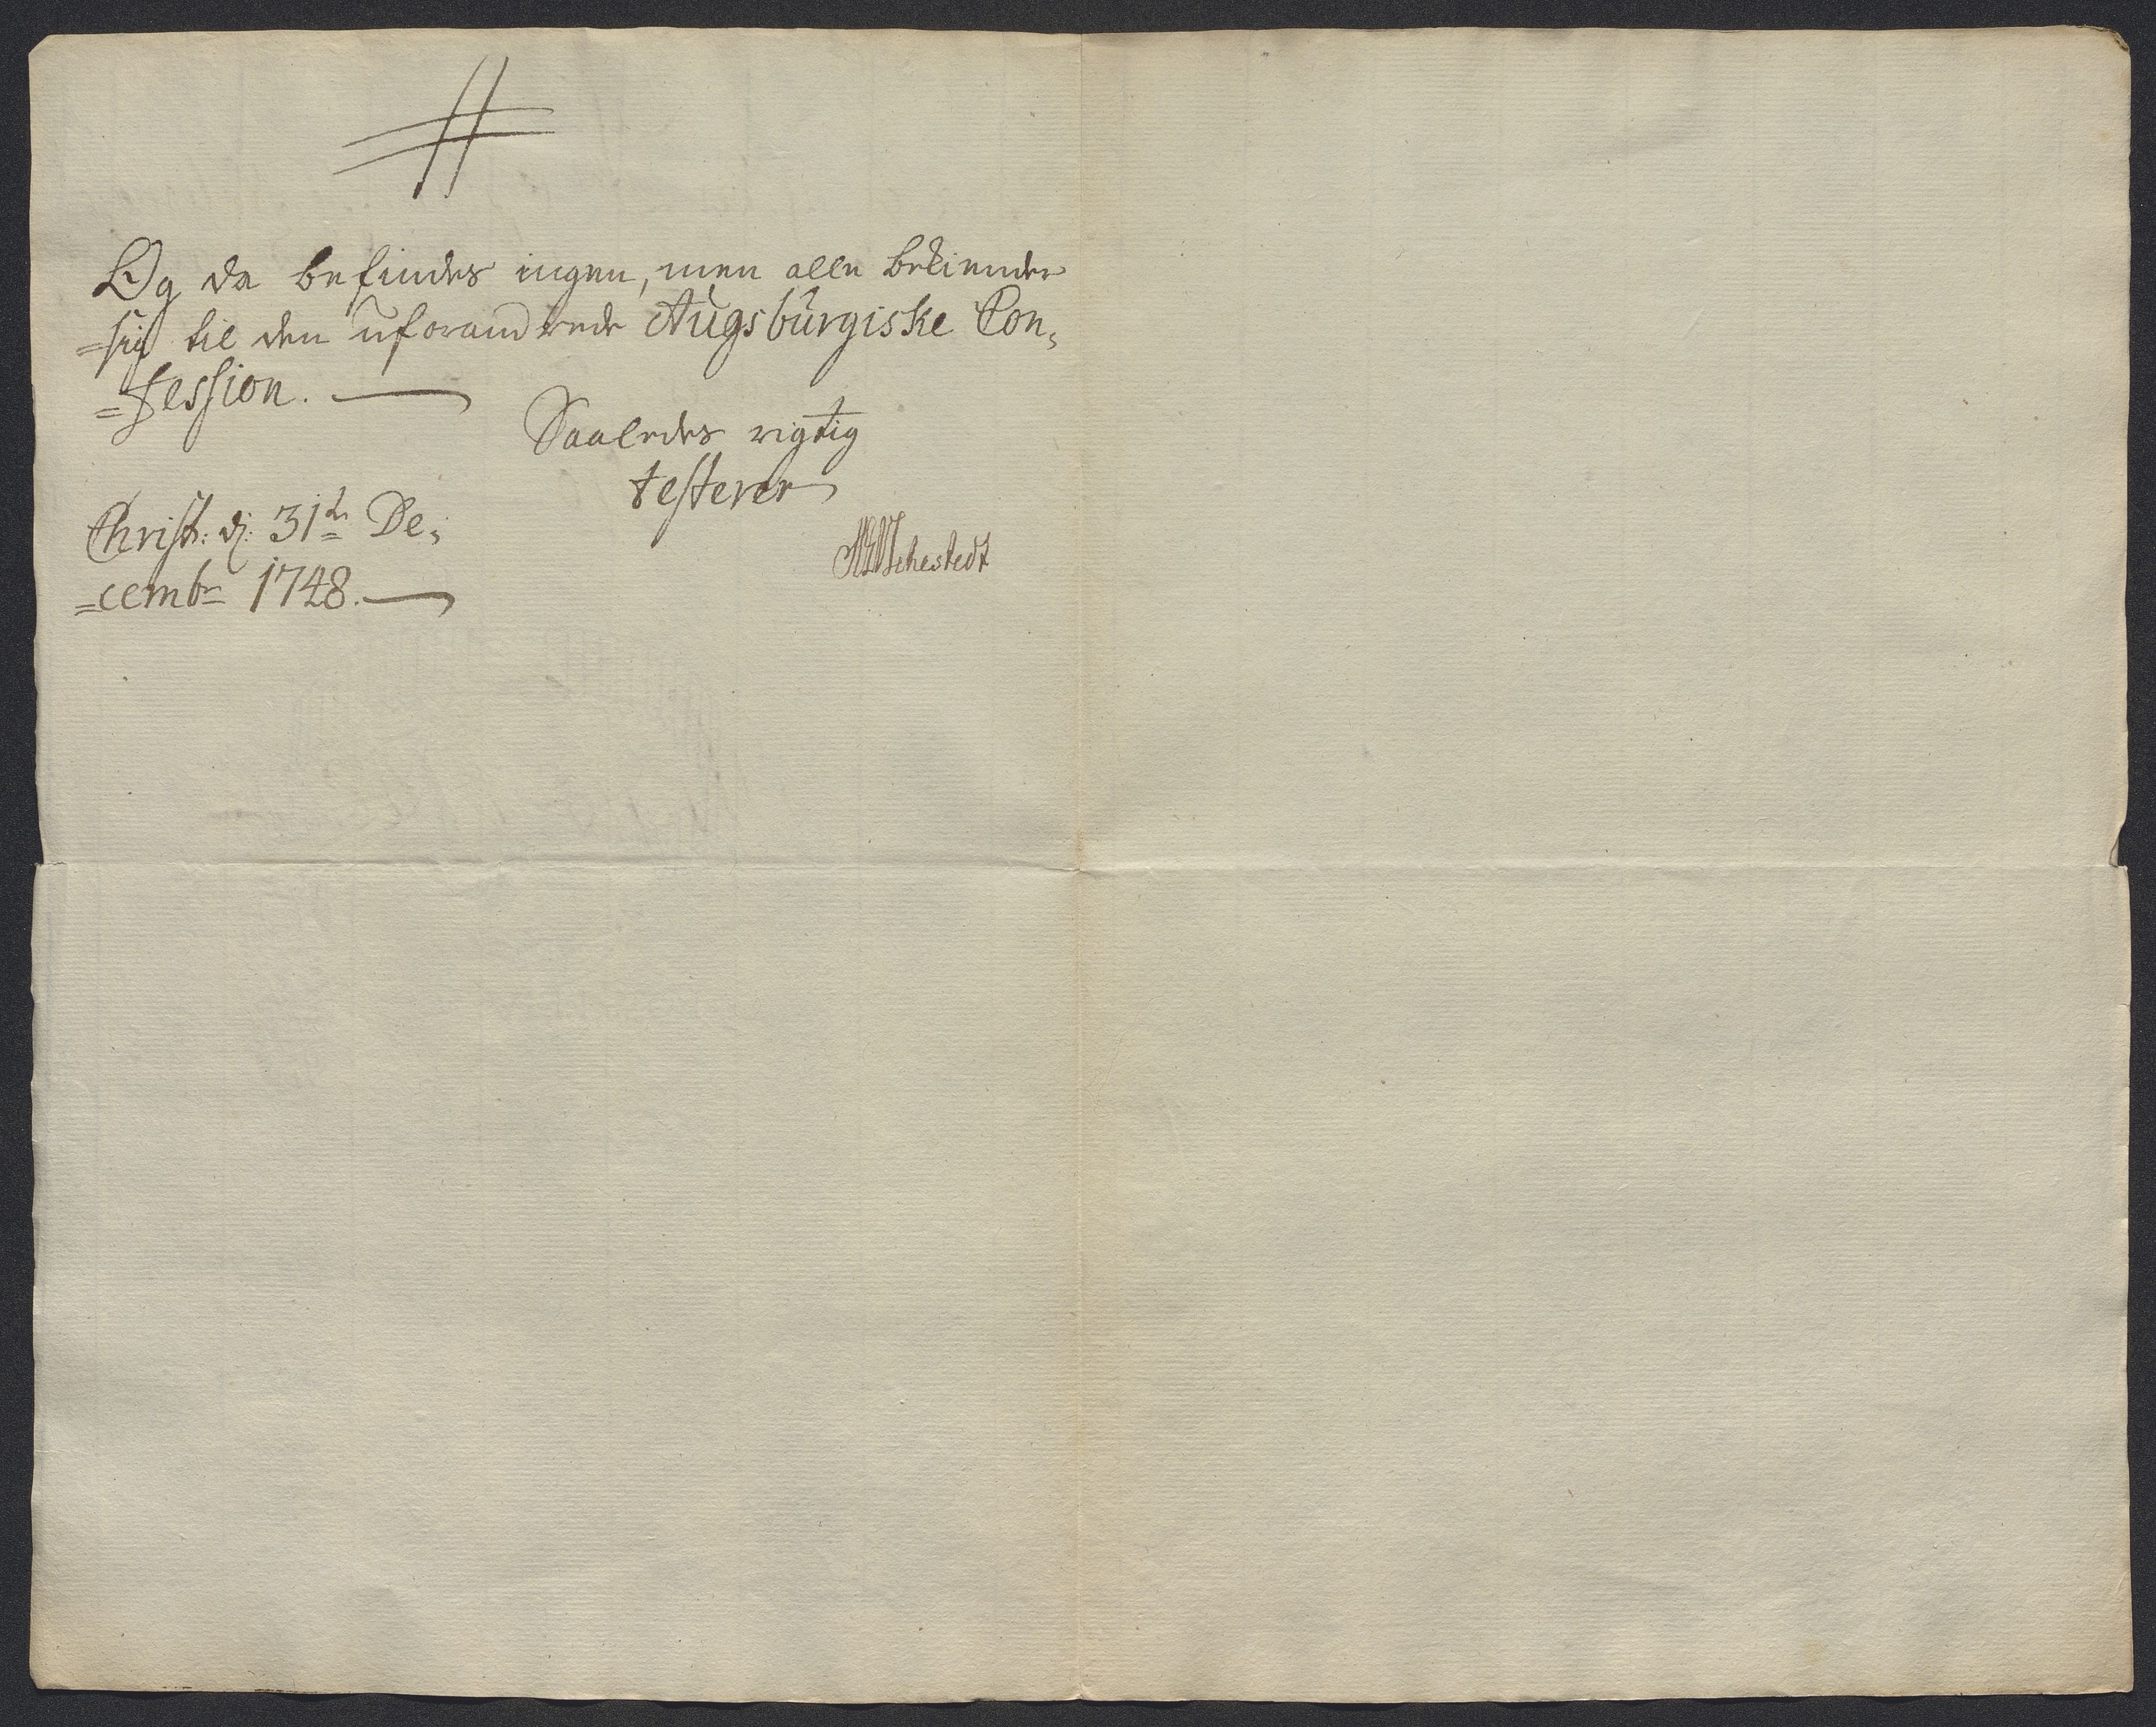 #
Og da befindes ingen, men alle bekiender
=sig til den uforandrede Augsbùrgiske Con=
=fession.
Saaledes rigtig
testerer
Christ: d: 31te De=
=cembr 1748.